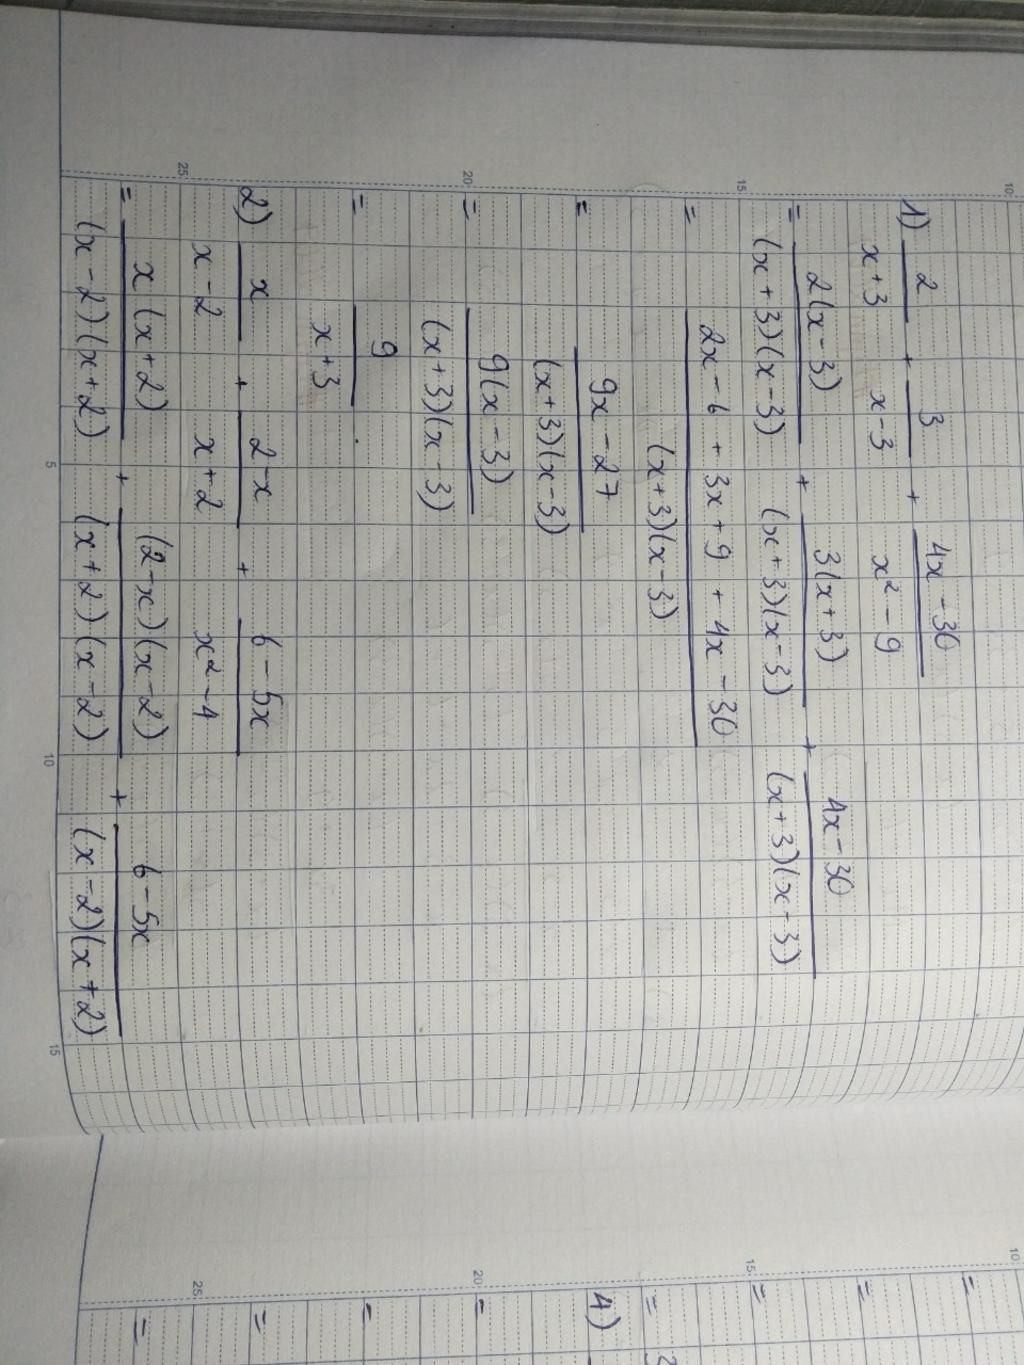 1) 2/(x+3) + 3/(x-3) + (4x-30)/(x²-9)
= 2(x-3)/((x+3)(x-3)) + 3(x+3)/((x+3)(x-3)) + (4x-30)/((x+3)(x-3))
= (2x-6+3x+9+4x-30)/((x+3)(x-3))
= (9x-27)/((x+3)(x-3))
= 9(x-3)/((x+3)(x-3))
= 9/(x+3).
2) x/(x-2) + (2-x)/(x+2) + (6-5x)/(x²-4)
= x(x+2)/((x-2)(x+2)) + (2-x)(x-2)/((x+2)(x-2)) + (6-5x)/((x-2)(x+2))
5 10 15
10
15
20
25
10
=
=
15 =
=
4) 2
20 =
=
=
25 =